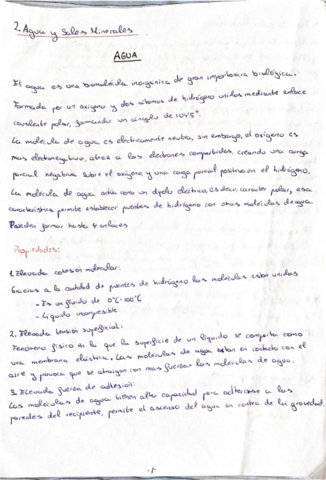 2. Agua y Sales Minerales
AGUA
El agua es una biomolécula inorgánica de gran importancia biológica.
Formada por un oxígeno y dos átomos de hidrógeno unidos mediante enlace
covalente polar, formando un ángulo de 104'5°.
La molécula de agua es eléctricamente neutra, sin embargo, el oxígeno es
mas electronegativo, atrae a los electrones compartidos, creando una carga
parcial negativa sobre el oxígeno y una carga parcial positiva en el hidrógeno.
La molécula de agua actúa como un dipolo eléctrico, es decir, caracter polar, esa
característica permite establecer puentes de hidrógeno con otras moléculas de agua.
Pueden formar hasta 4 enlaces
Propiedades:
1. Elevada cohesión molecular:
Gracias a la cantidad de puentes de hidrógeno las moléculas están unidas
- Es un fluido de 0°C-100°C
- Líquido incompresible
2. Elevada tensión superficial:
Fenómeno físico en la que la superficie de un líquido se comporta como
una membrana elástica. Las moléculas de agua están en contacto con el
aire y provoca que se atraigan con mas fuerza las moléculas de agua.
3. Elevada fuerza de adhesión:
Las moléculas de agua tienen alta capacidad para adherirse a las
paredes del recipiente, permite el ascenso del agua en contra de la gravedad.
-1-